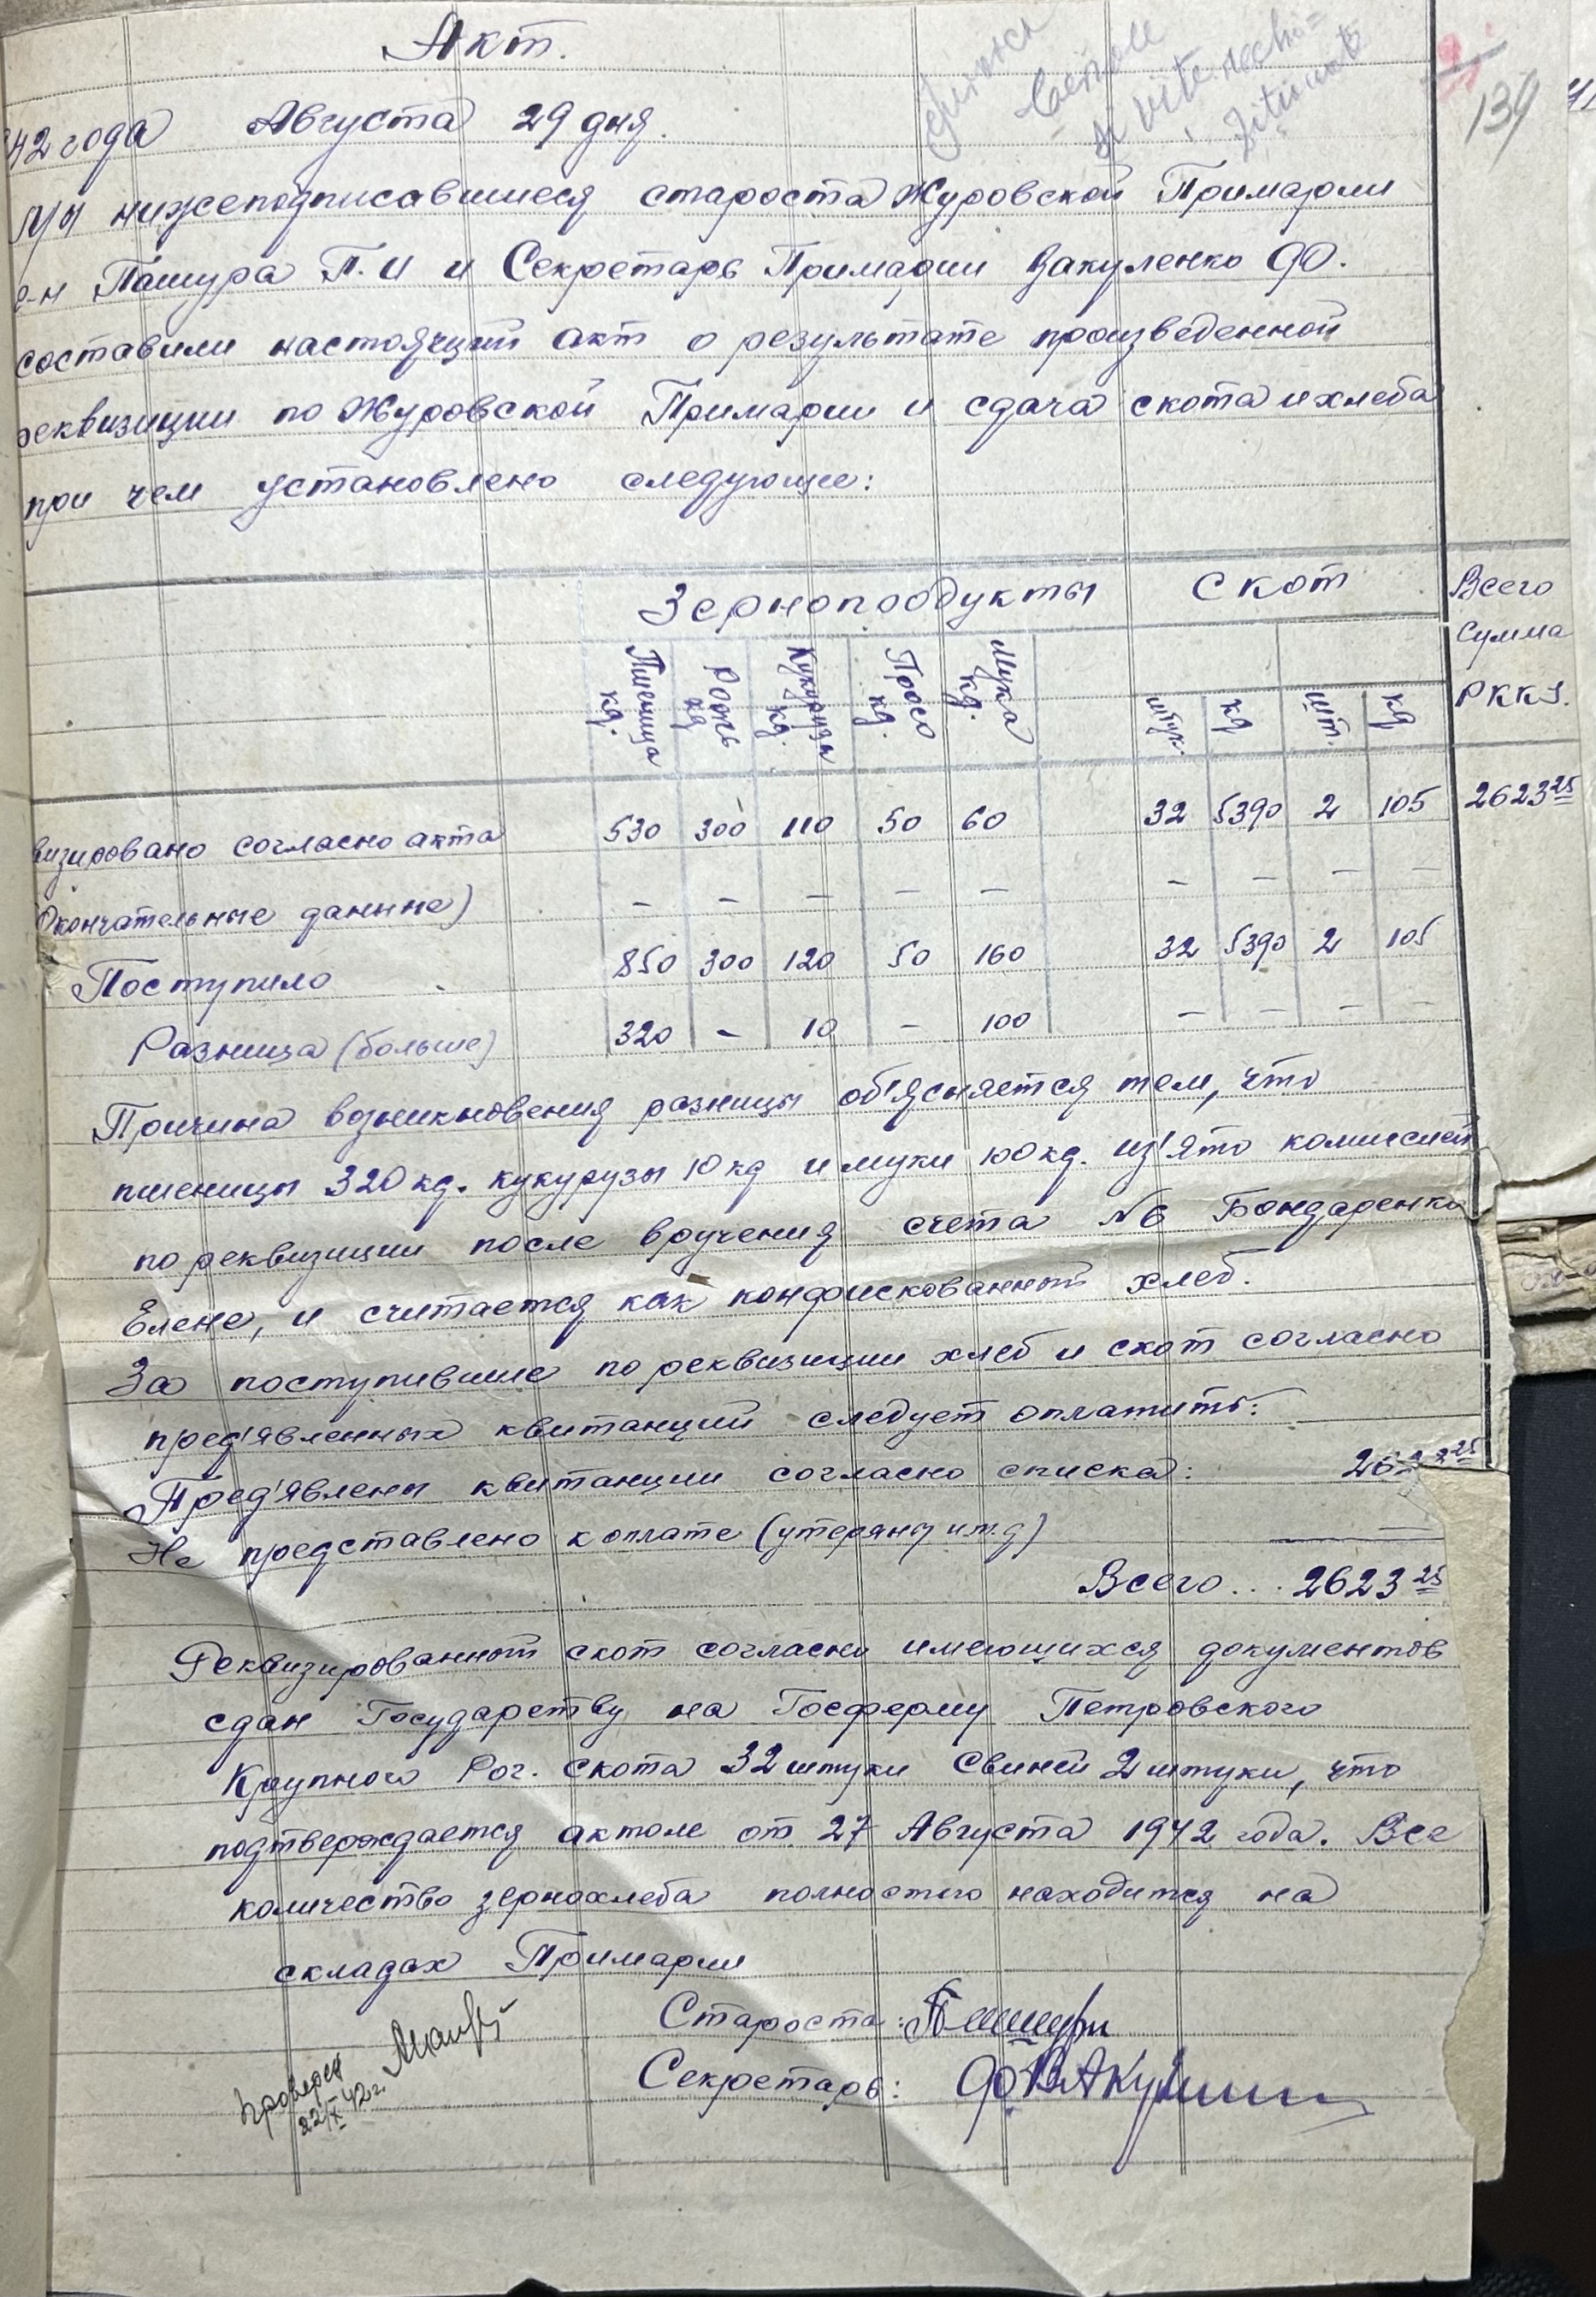 Акт.
42 года Августа 29 дня.
Мы нижеподписавшиеся староста Журовской Примарии
г-н Пашура П.И и Секретарь Примарии Вакуленко Ф.
составили настоящий акт о результате произведенной
реквизиции по Журовской Примарии и сдача скота и хлеба
при чем установлено следующее:
Зернопродукты скот Всего
Сумма
РККЗ.
Пшеница кг. Рожь кг Кукуруза кг. Просо кг. Мука кг. штук. кг шт. кг
визировано согласно акта 530 300 110 50 60 32 5390 2 105 2623 25
Окончательные данные) – – – – – – – – –
Поступило 850 300 120 50 160 32 5390 2 105
Разница (больше) 320 – 10 – 100 – – – –
Причина возникновения разницы об'ясняется тем, что
пшеницы 320 кг. кукурузы 10 кг и муки 100 кг. из'ято комиссией
по реквизиции после вручения счета № 6 Бондаренко
Елене, и считается как конфискованный хлеб.
За поступившие по реквизиции хлеб и скот согласно
пред'явленных квитанций следует оплатить:
Пред'явлены квитанции согласно списка:
Не представлено к оплате (утеряны и т.д) —
Всего... 2623 25
Реквизированный скот согласно имеющихся документов
сдан Государству на Госферму Петровского
Крупного Рог. скота 32 штуки Свиней 2 штуки, что
подтверждается актом от 27 Августа 1942 года. Все
количество зернохлеба полностью находится на
складах Примарии
Староста:
Секретарь:
22/IX 42г.